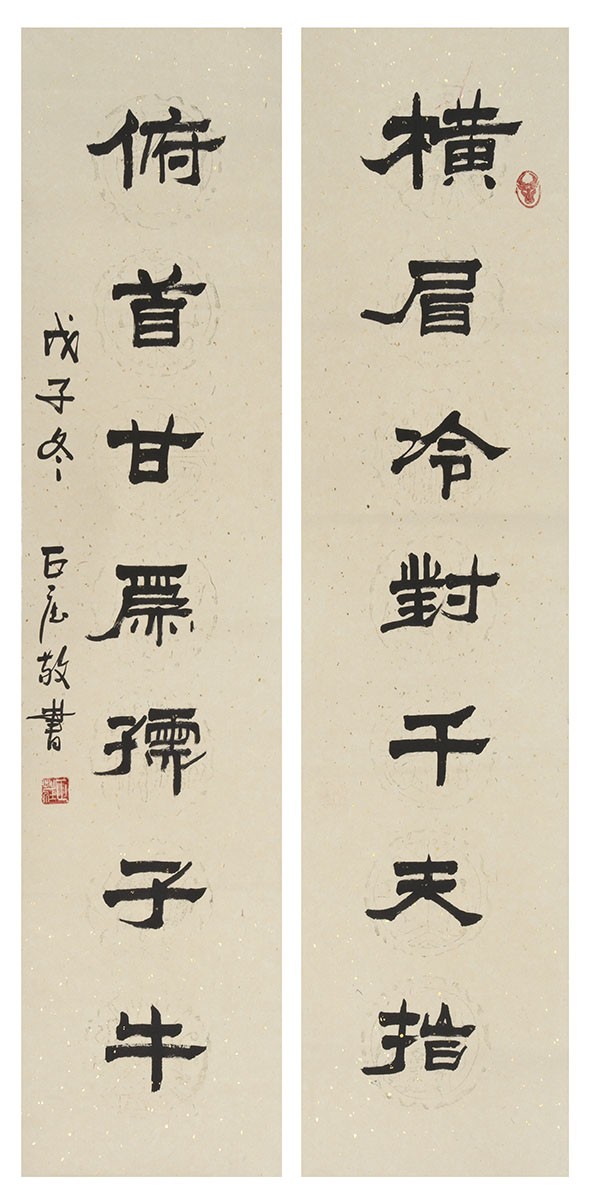 橫眉冷對千夫指
俯首甘為孺子牛
戊子冬 石在敬書